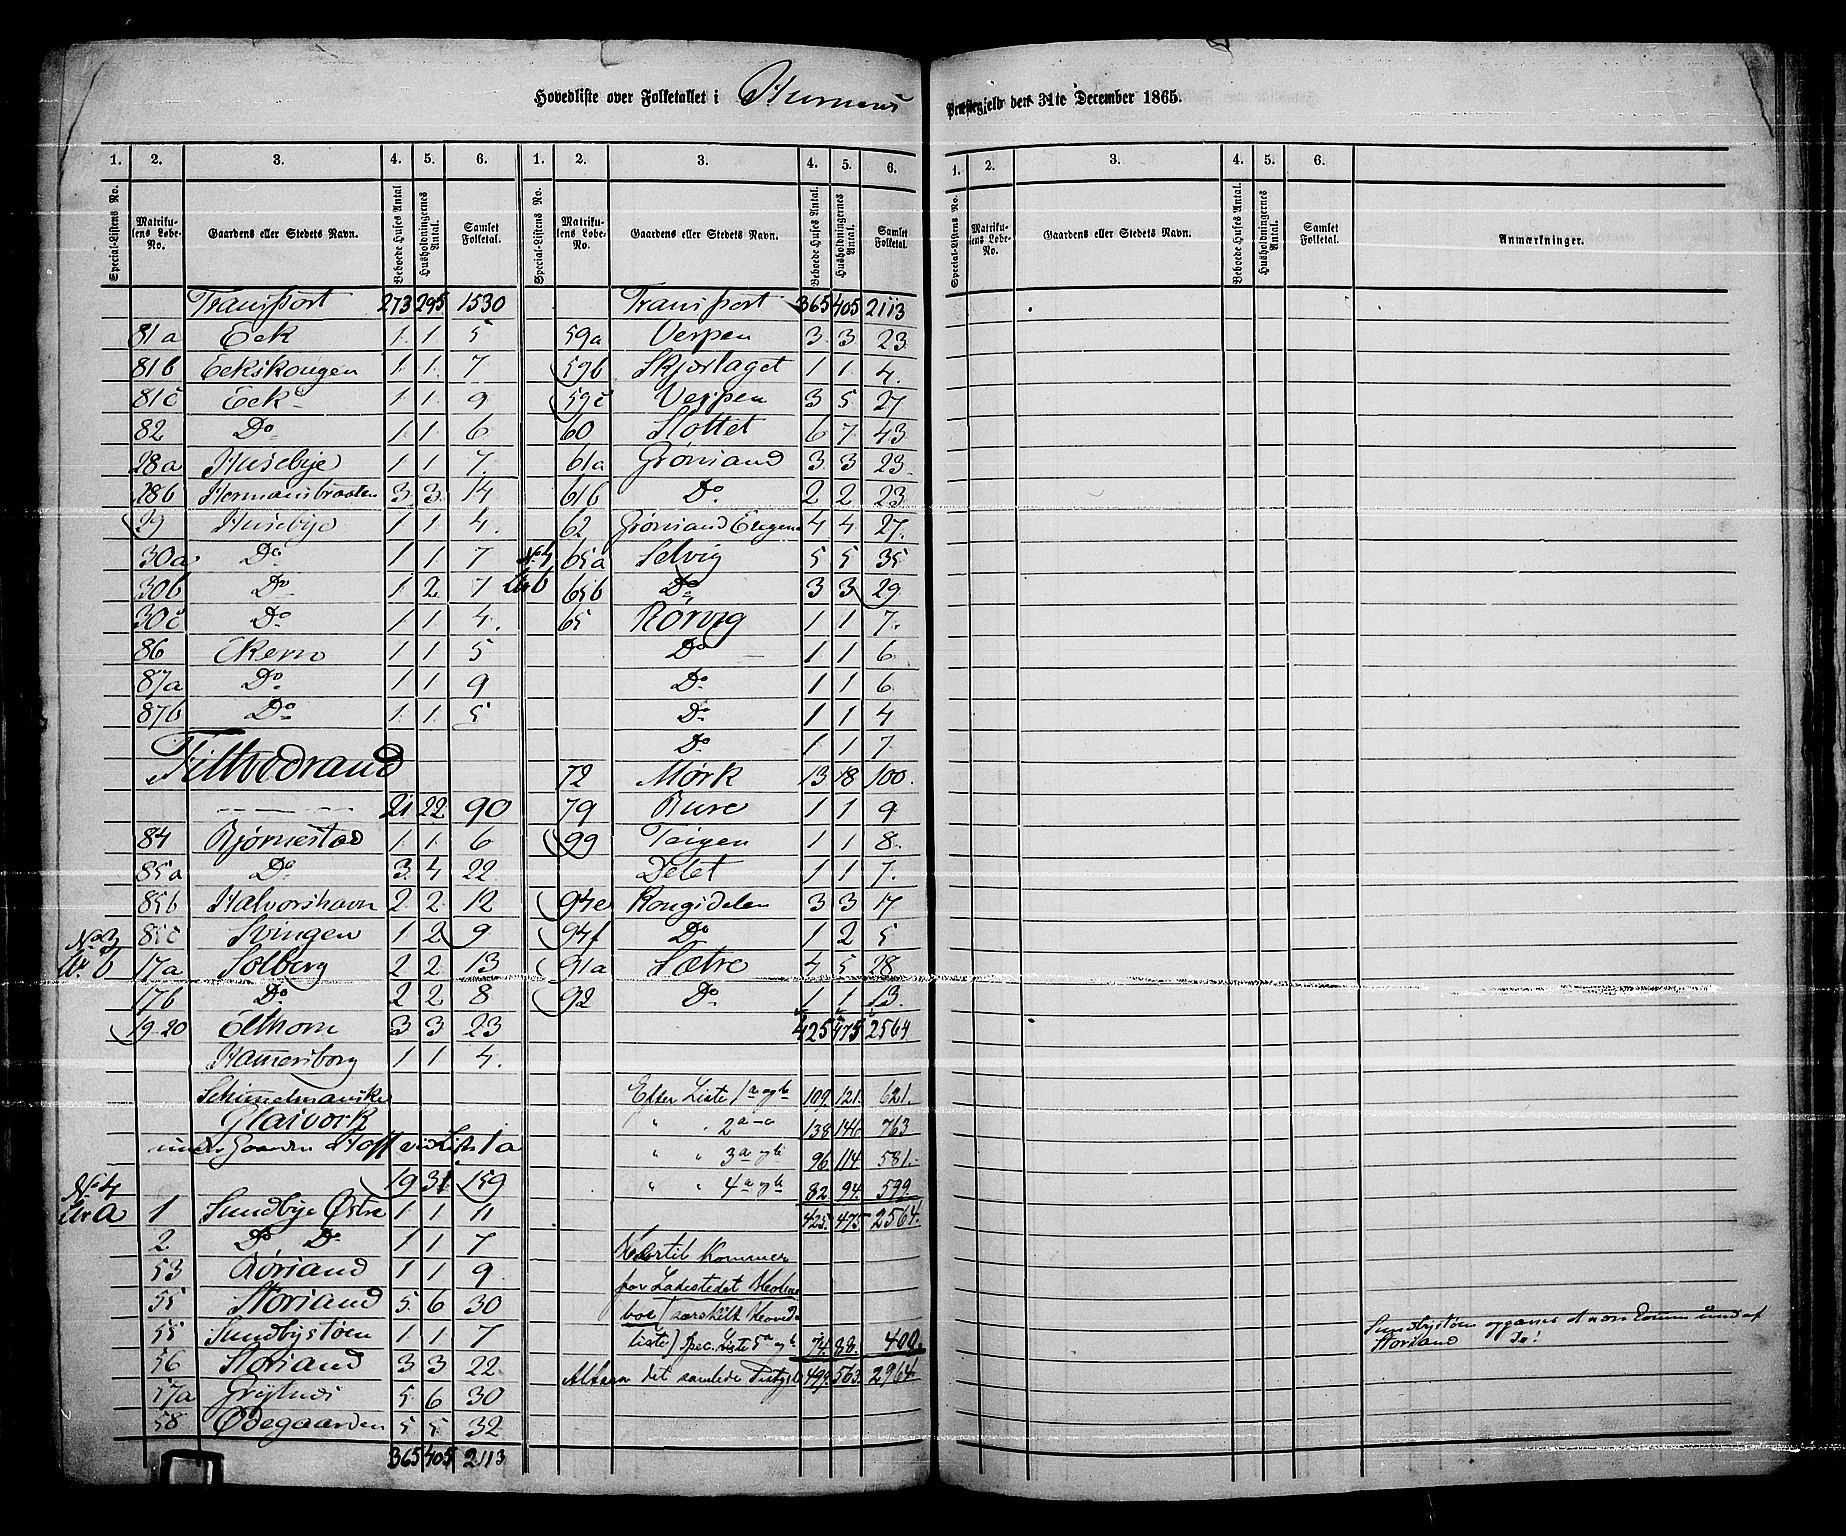 Hovedliste over Folketallet i Hurums Præstegjeld den 31te December 1865.
1. 2. 3. 4. 5. 6.
Special-Listens No. Matrikulens Løbe-No. Gaardens eller Stedets Navn. Beboede Huses Antal Husholdningernes Antal. Samlet Folketal.
Transport 273 295 1530
81a Eek 1 1 5
81b Eekskougen 1 1 7
81c Eek 1 1 9
82 Do 1 1 6
28a Husebye 1 1 7
28b Hermansbraaten 3 3 14
29 Husebye 1 1 4
30a Do 1 1 7
30b Do 1 2 7
30c Do 1 1 4
86 Ekern 1 1 5
87a Do 1 1 9
87b Do 1 1 5
Filtvedtrand
21 22 90
84 Bjørnestad 1 1 6
85a Do 3 4 22
85b Halvorshavn 2 2 12
85c Svingen 1 2 9
No 3 Litr b 17a Solberg 2 2 13
17b Do 2 2 8
19.20 Elthorn 3 3 23
Hamersborg 1 1 4
Schimmelmanske
Glasværk
under Gaarden Hoff vid List 1a
19 31 159
No 4
Litr a 1 Sundbye Østre 1 1 11
2 Do Do 1 1 7
53 Rørsand 1 1 9
55 Storsand 5 6 30
55 Sundbystøen 1 1 7
56 Storsand 3 3 22
57a Grytnes 5 6 30
58 Ødegaarden 5 5 32
365 405 2113
1. 2. 3. 4. 5. 6.
Special-Listens No. Matrikulens Løbe-No. Gaardens eller Stedets Navn. Beboede Huses Antal. Husholdningernes Antal. Samlet Folketal.
Transport 365 405 2113
59a Verpen 3 3 23
59b Skjørtaget 1 1 4
59c Verpen 3 5 27
60 Slottet 6 7 43
61a Grønsand 3 3 23
61b Do 2 2 23
62 Grønsand Engene 4 4 27
No 4 65a Selvig 5 5 35
Litr b 65b Do 3 3 29
65 Rørvig 1 1 7
Do 1 1 6
Do 1 1 6
Do 1 1 4
Do 1 1 7
72 Mørk 13 18 100
79 Bure 1 1 9
99 Teigen 1 1 8
Delet 1 1 7
94e Kongsdelen 3 3 17
94f Do 1 2 5
91a Sætre 4 5 28
92 Do 1 1 13
425 475 2564
Efter Liste 1 a og b 109 121 621
" " 2 a-a 138 146 763
" " 3 a og b 96 114 581
" " 4 a og b 82 94 599
425 475 2564
Hertil kommer
for Ladestedet Holms
boe (særskilt Hoved
liste) Spec. Liste 5 a og b 74 88 400
Altsaa det samlede 499 563 2964
1. 2. 3. 4. 5. 6.
Special-Listens No. Matrikulens Løbe-No. Gaardens eller Stedets Navn. Beboede Huses Antal. Husholdningernes Antal. Samlet Folketal. Anmærkninger.
Sundbystøen
Storsand